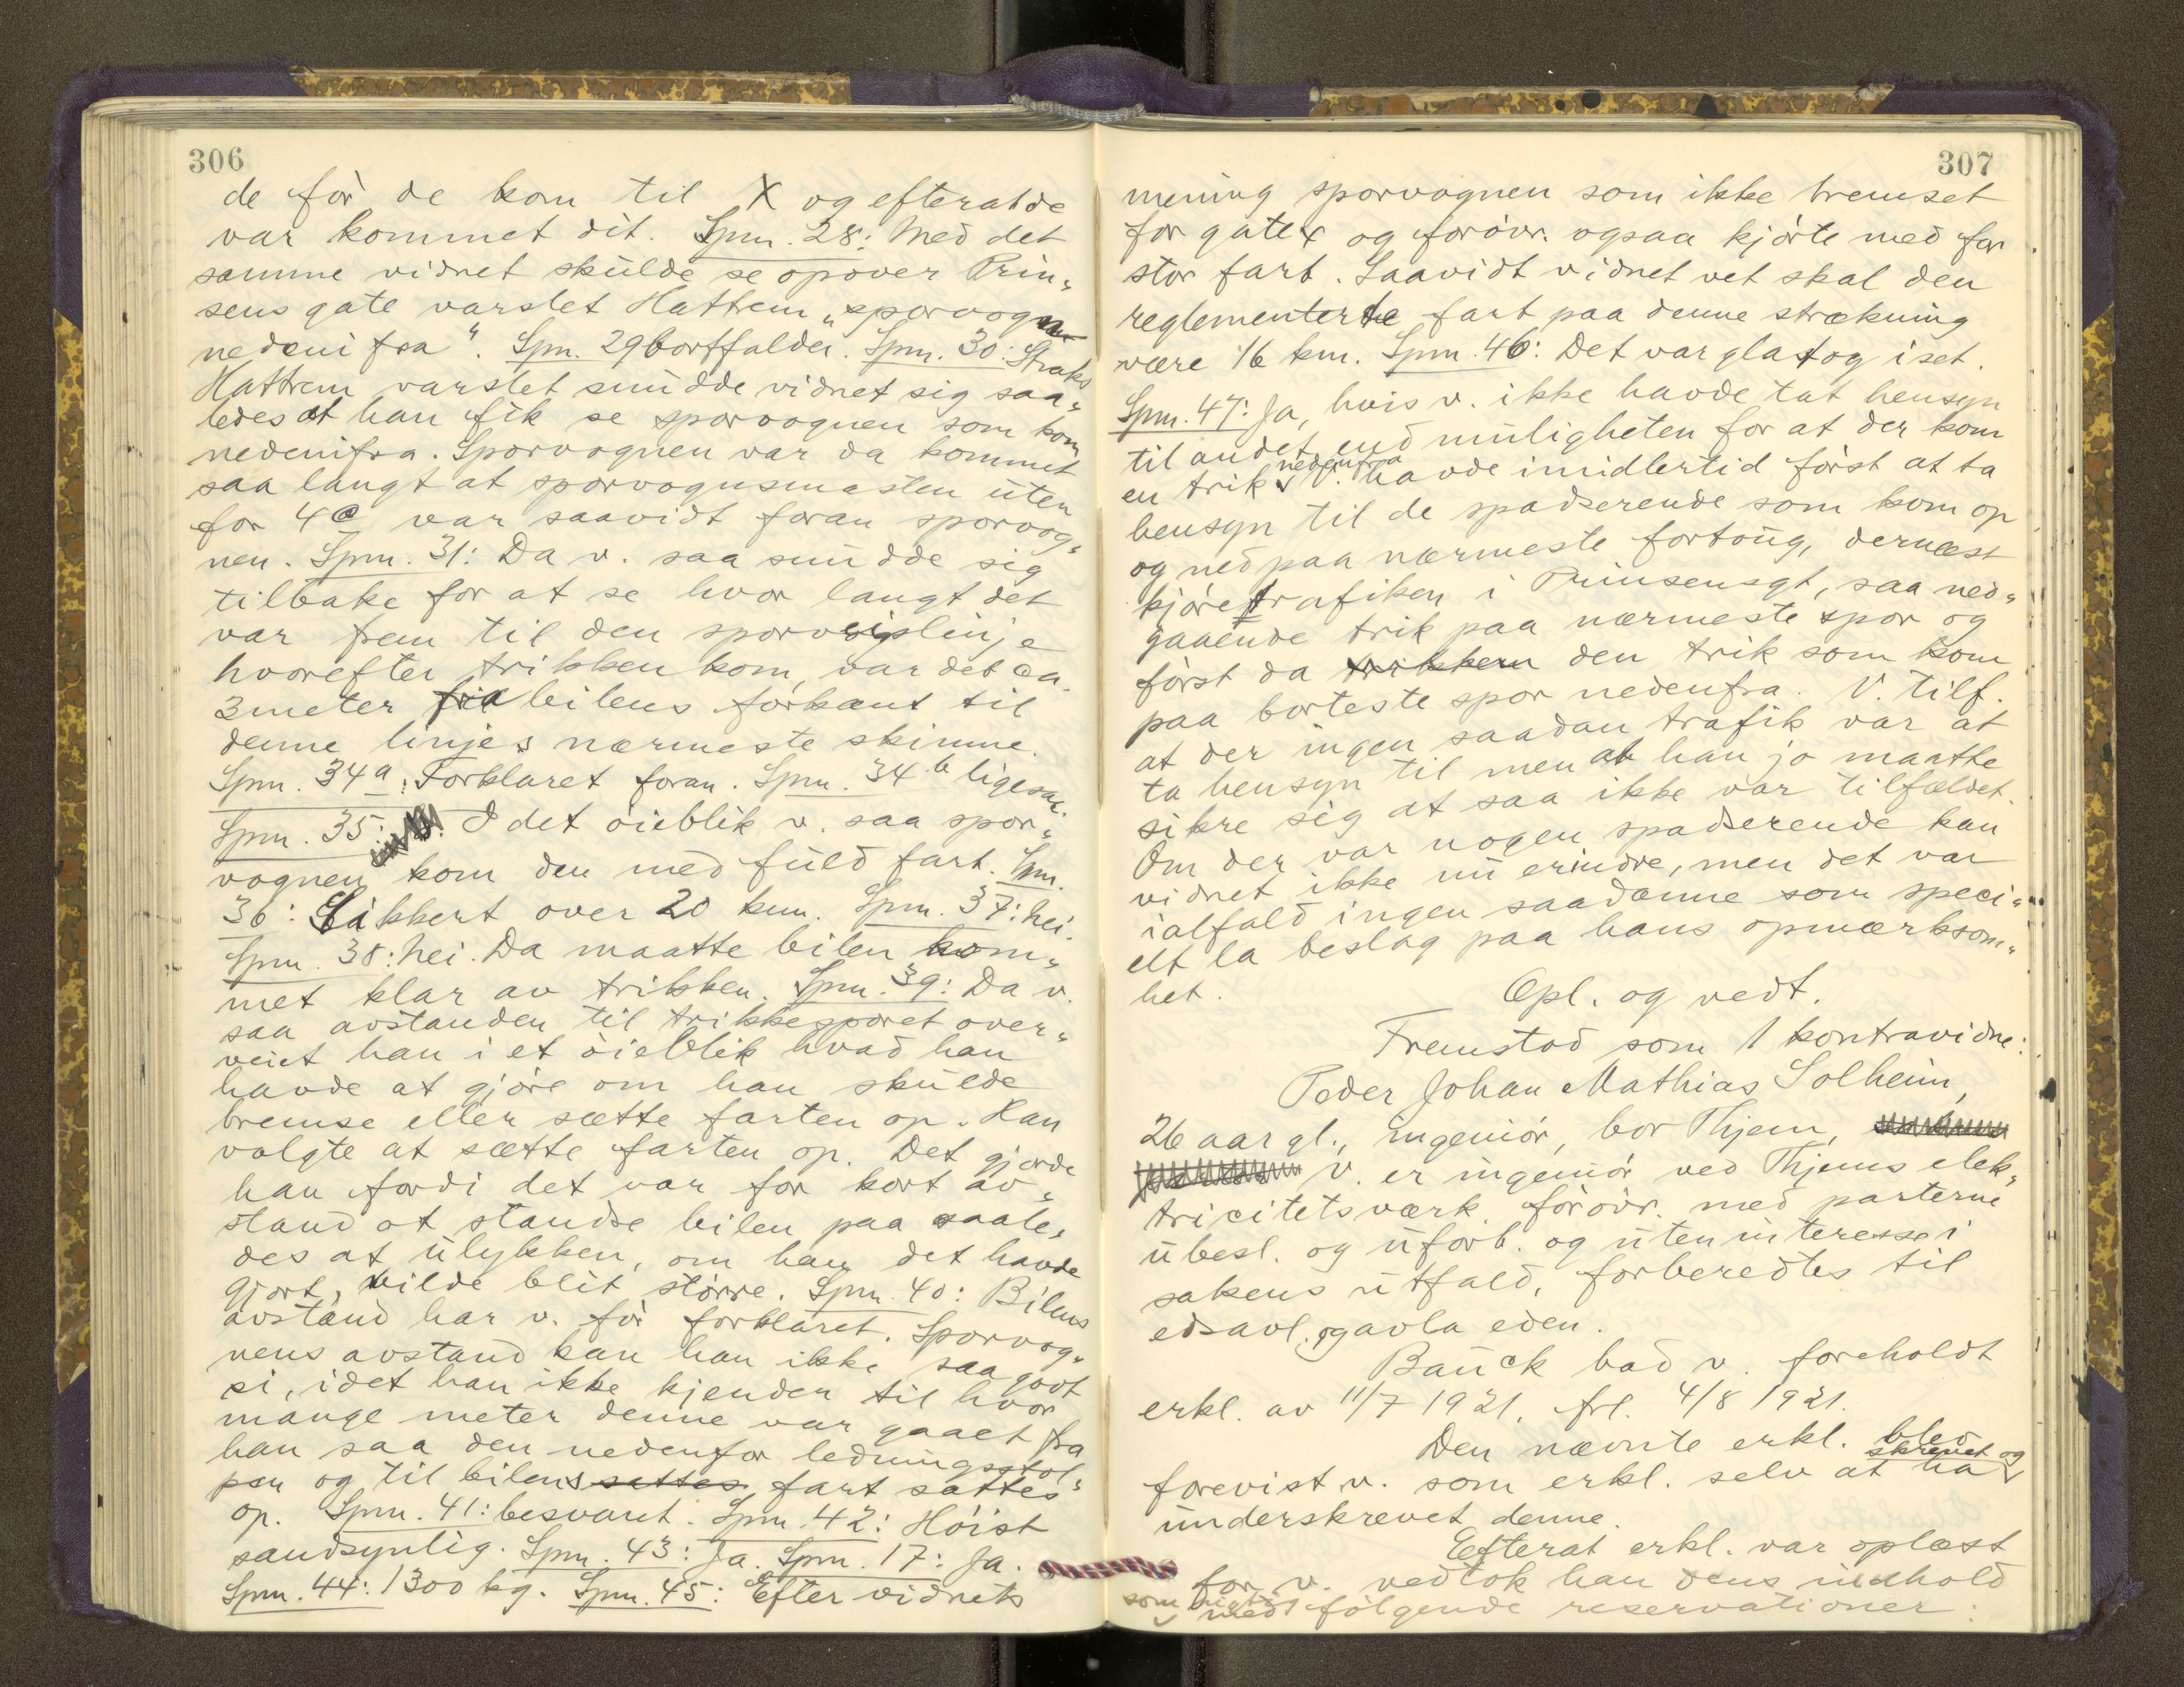 306
de før de kom til X og efterat de
var kommet dit. Spm. 28: Med det
samme vidnet skulde se opover Prin„
sens gate varslet Hattrem „sporvogn
nedenifra“. Spm. 29 bortfalder. Spm. 30: Straks
Hattrem varslet snudde vidnet sig saa„
ledes at han fik se sporvognen som kom
nedenifra. Sporvognen var da kommet
saa langt at sporvognsmasten uten
for 4c var saavidt foran sporvog„
nen. Spm. 31: Da v. saa snudde sig
tilbake for at se hvor langt det
var frem til den sporveislinje
hvorefter trikken kom, var det ca.
3 meter fra bilens forkant til
denne linjes nærmeste skinne.
Spm. 34a: Forklaret foran. Spm. 34b ligesaa.
Spm. 35: I det øieblik v. saa spor„
vognen kom den med fuld fart. Spm.
36: Sikkert over 20 km. Spm. 37: Nei.
Spm. 38: Nei. Da maatte bilen kom„
met klar av trikken. Spm. 39: Da v.
saa avstanden til trikkesporet over„
veiet han i et øieblik hvad han
havde at gjøre om han skulde
bremse eller sætte farten op. Han
valgte at sætte farten op. Det gjorde
han fordi det var for kort av„
stand at standse bilen paa saale„
des at ulykken, om han det havde
gjort, vilde blit større. Spm. 40: Bilens
avstand har v. før forklaret. Sporvog„
nens avstand kan han ikke saa godt
si, idet han ikke kjender til hvor
mange meter denne var gaaet fra
han saa den nedenfor ledningsstol„
pen og til bilens sattes fart sattes
op. Spm. 41: besvaret. Spm. 42: Høist
sandsynlig. Spm. 43: Ja. Spm. 17: Ja.
Spm. 44: 1300 kg. Spm. 45: Efter vidnets
307
mening sporvognen som ikke bremset
for gatex og forøvr. ogsaa kjørte med for
stor fart. Saavidt vidnet vet skal den
reglementerte fart paa denne strækning
være 16 km. Spm. 46: Det var glat og iset.
Spm. 47: Ja, hvis v. ikke havde tat hensyn
til andet end muligheten for at der kom
nedenfra
en trik V. havde imidlertid først at ta
hensyn til de spadserende som kom op
og ned paa nærmeste fortoug, dernæst
kjøretrafiken i Prinsensgt, saa ned„
gaaende trik paa nærmeste spor og
først da trikken den trik som kom
paa borteste spor nedenfra. V. tilf.
at der ingen saadan trafik var at
ta hensyn til men at han jo maatte
sikre sig at saa ikke var tilfældet.
Om der var nogen spadserende kan
vidnet ikke nu erindre, men det var
ialfald ingen saadanne som speci„
elt la beslag paa hans opmærksom„
het.
Opl. og vedt.
Fremstod som 1 kontravidne:
Peder Johan Mathias Solheim,
26 aar gl., ingeniør, bor Thjem,
v. er ingeniør ved Thjems elek„
tricitetsværk. forøvr. med parterne
ubesl. og uforb. og uten interesse i
sakens utfald, forberedtes til
edsavl. og avla eden.
Bauck bad v. foreholdt
erkl. av 11/7 1921. frl. 4/8 1921.
Den nævnte erkl. blev
skrevet og
forevist v. som erkl. selv at ha
underskrevet denne.
Efterat erkl. var oplæst
for v. vedtok han dens indhold
som rigtig med følgende reservationer: